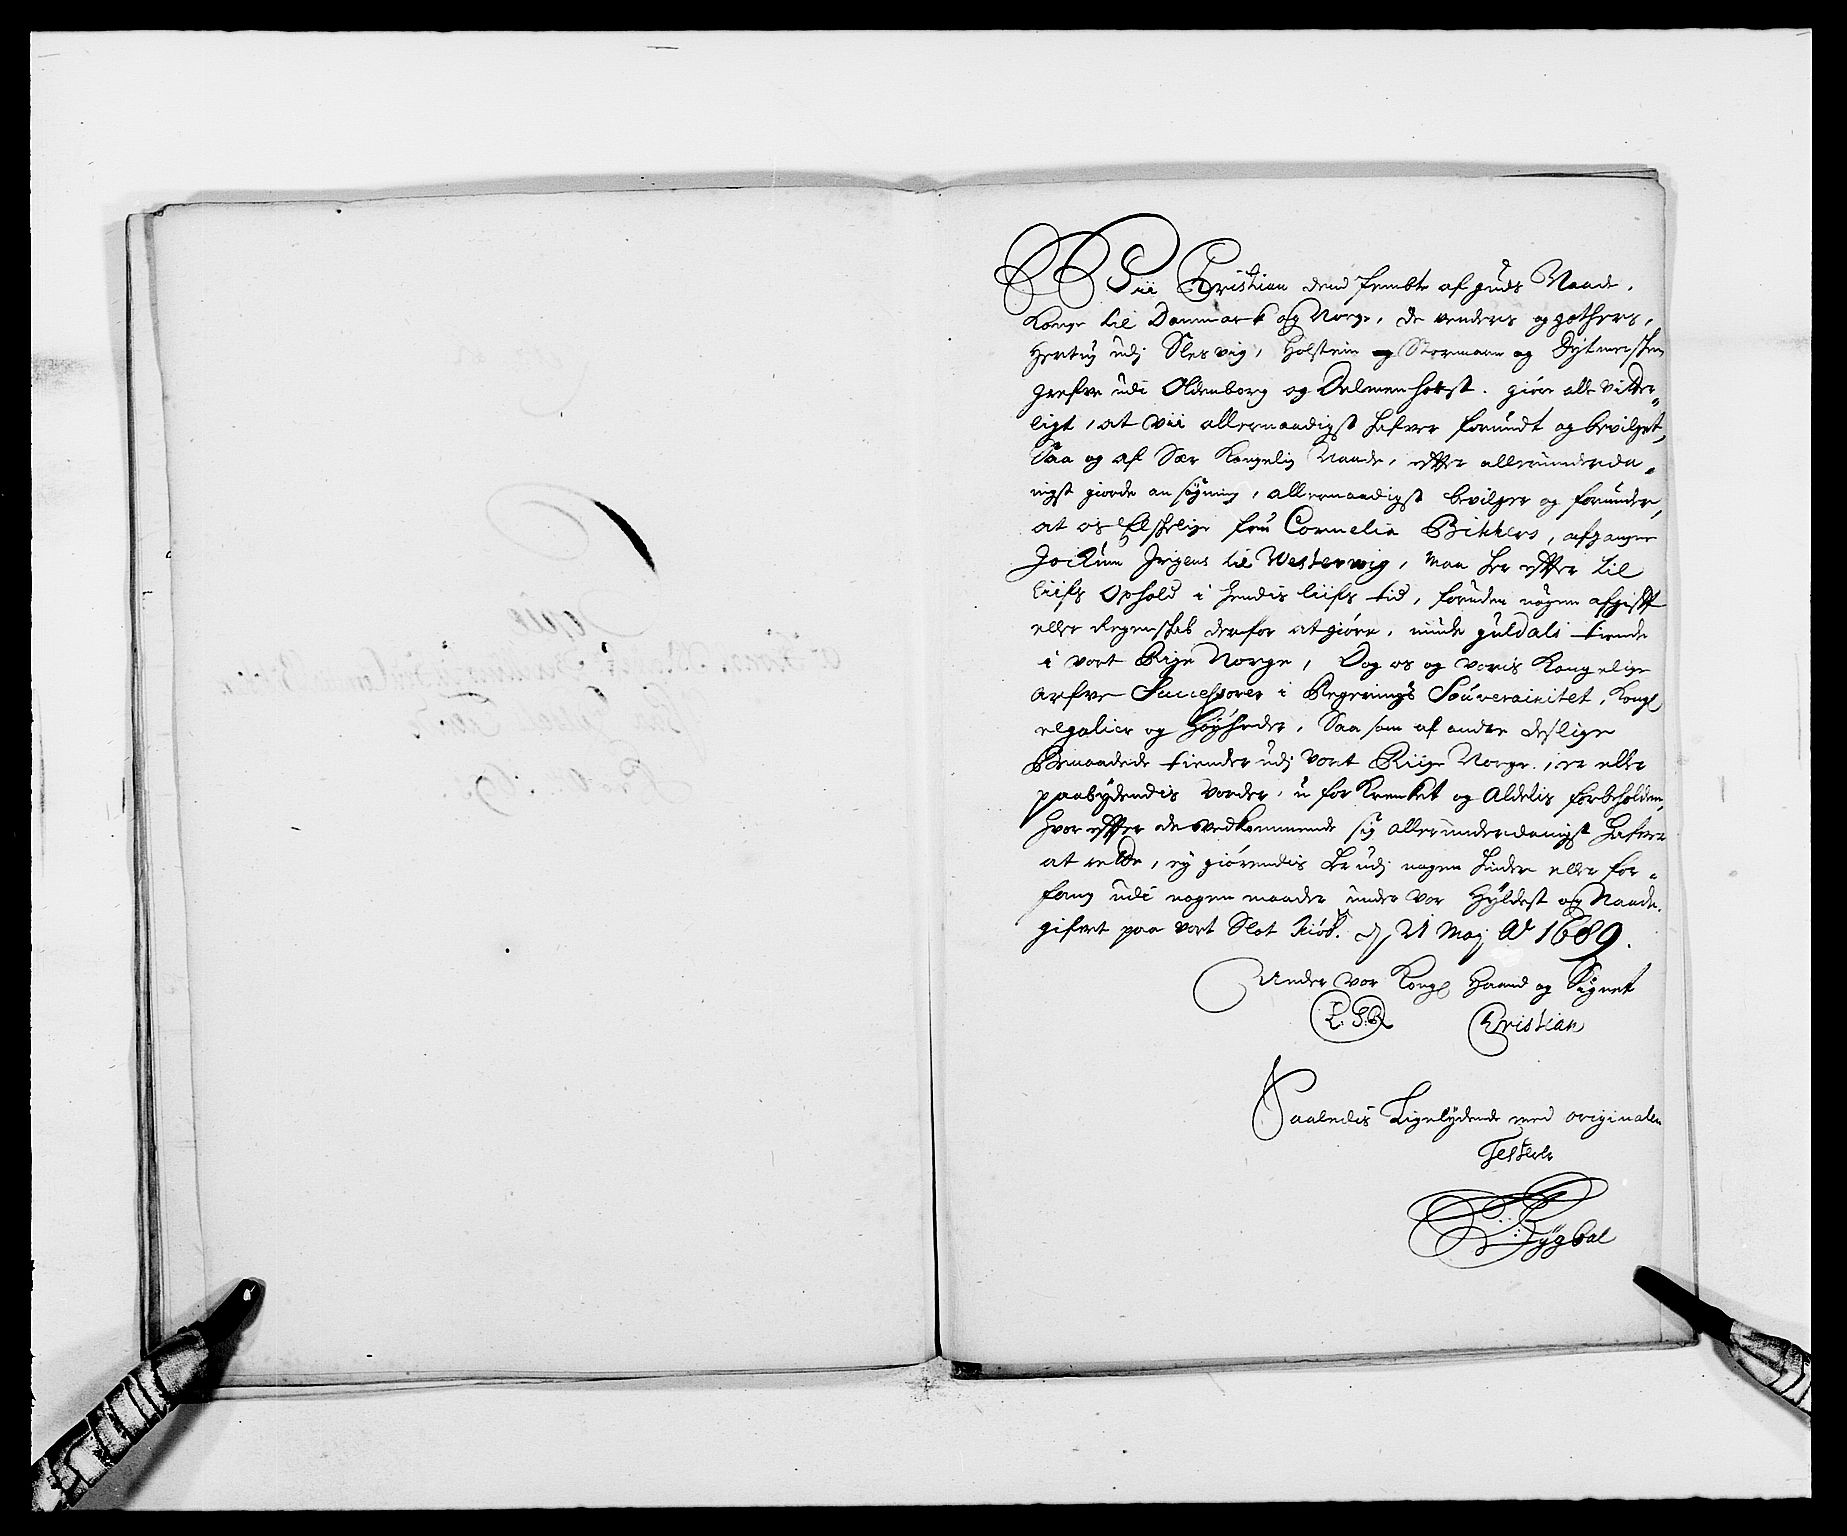 Vii Christian dend Fembte af guds Naade,
Konge til Danmark og Norge, de venders og gothers,
Hertug udj Slesvig, Holsten og Stormarn og Dytmersken
grefve udi Oldenborg og Delmenhorst. giøre alle vitter=
ligt, at vii allernaadigst hafver forundt og bevilget,
Saa og af Sær Kongelig Naade, efter allerunderda=
nigst giorde ansøgning, allernaadigst bevilger og forunder,
at os Elskelige frue Cornelia Bikkers, afgangne
Jochum Jrgens til Westerwig, maa her efter til
liifs Ophold i hendis liifs tid, foruden nogen afgift
eller Regenskab derfor at giøre, niude guldals tiende
i vort Rige Norge, Dog os og voris Kongelige
arfve Successorer i Regerings Souverainitet, Kongl
regalier og Høyheder, Saa som af andre deslige
Benaadede tiender udj vort Riige Norge, er eller
paabydendis vorder, u forkrenket og Aldelis forbeholden,
hvor efter de vedkommende sig allerunderdanigst hafver
at rette, ey giørendis her udj nogen hinder eller for=
fang udi nogen maader under vor Hyldest og Naade.
gifvet paa vort Slot Kiøb. d 21 Maj Ao 1689.
Under vor Kongl Haand og Signet
L. S. Christian
Saaledis Ligelydende med originalen
Testerer
Bygbal